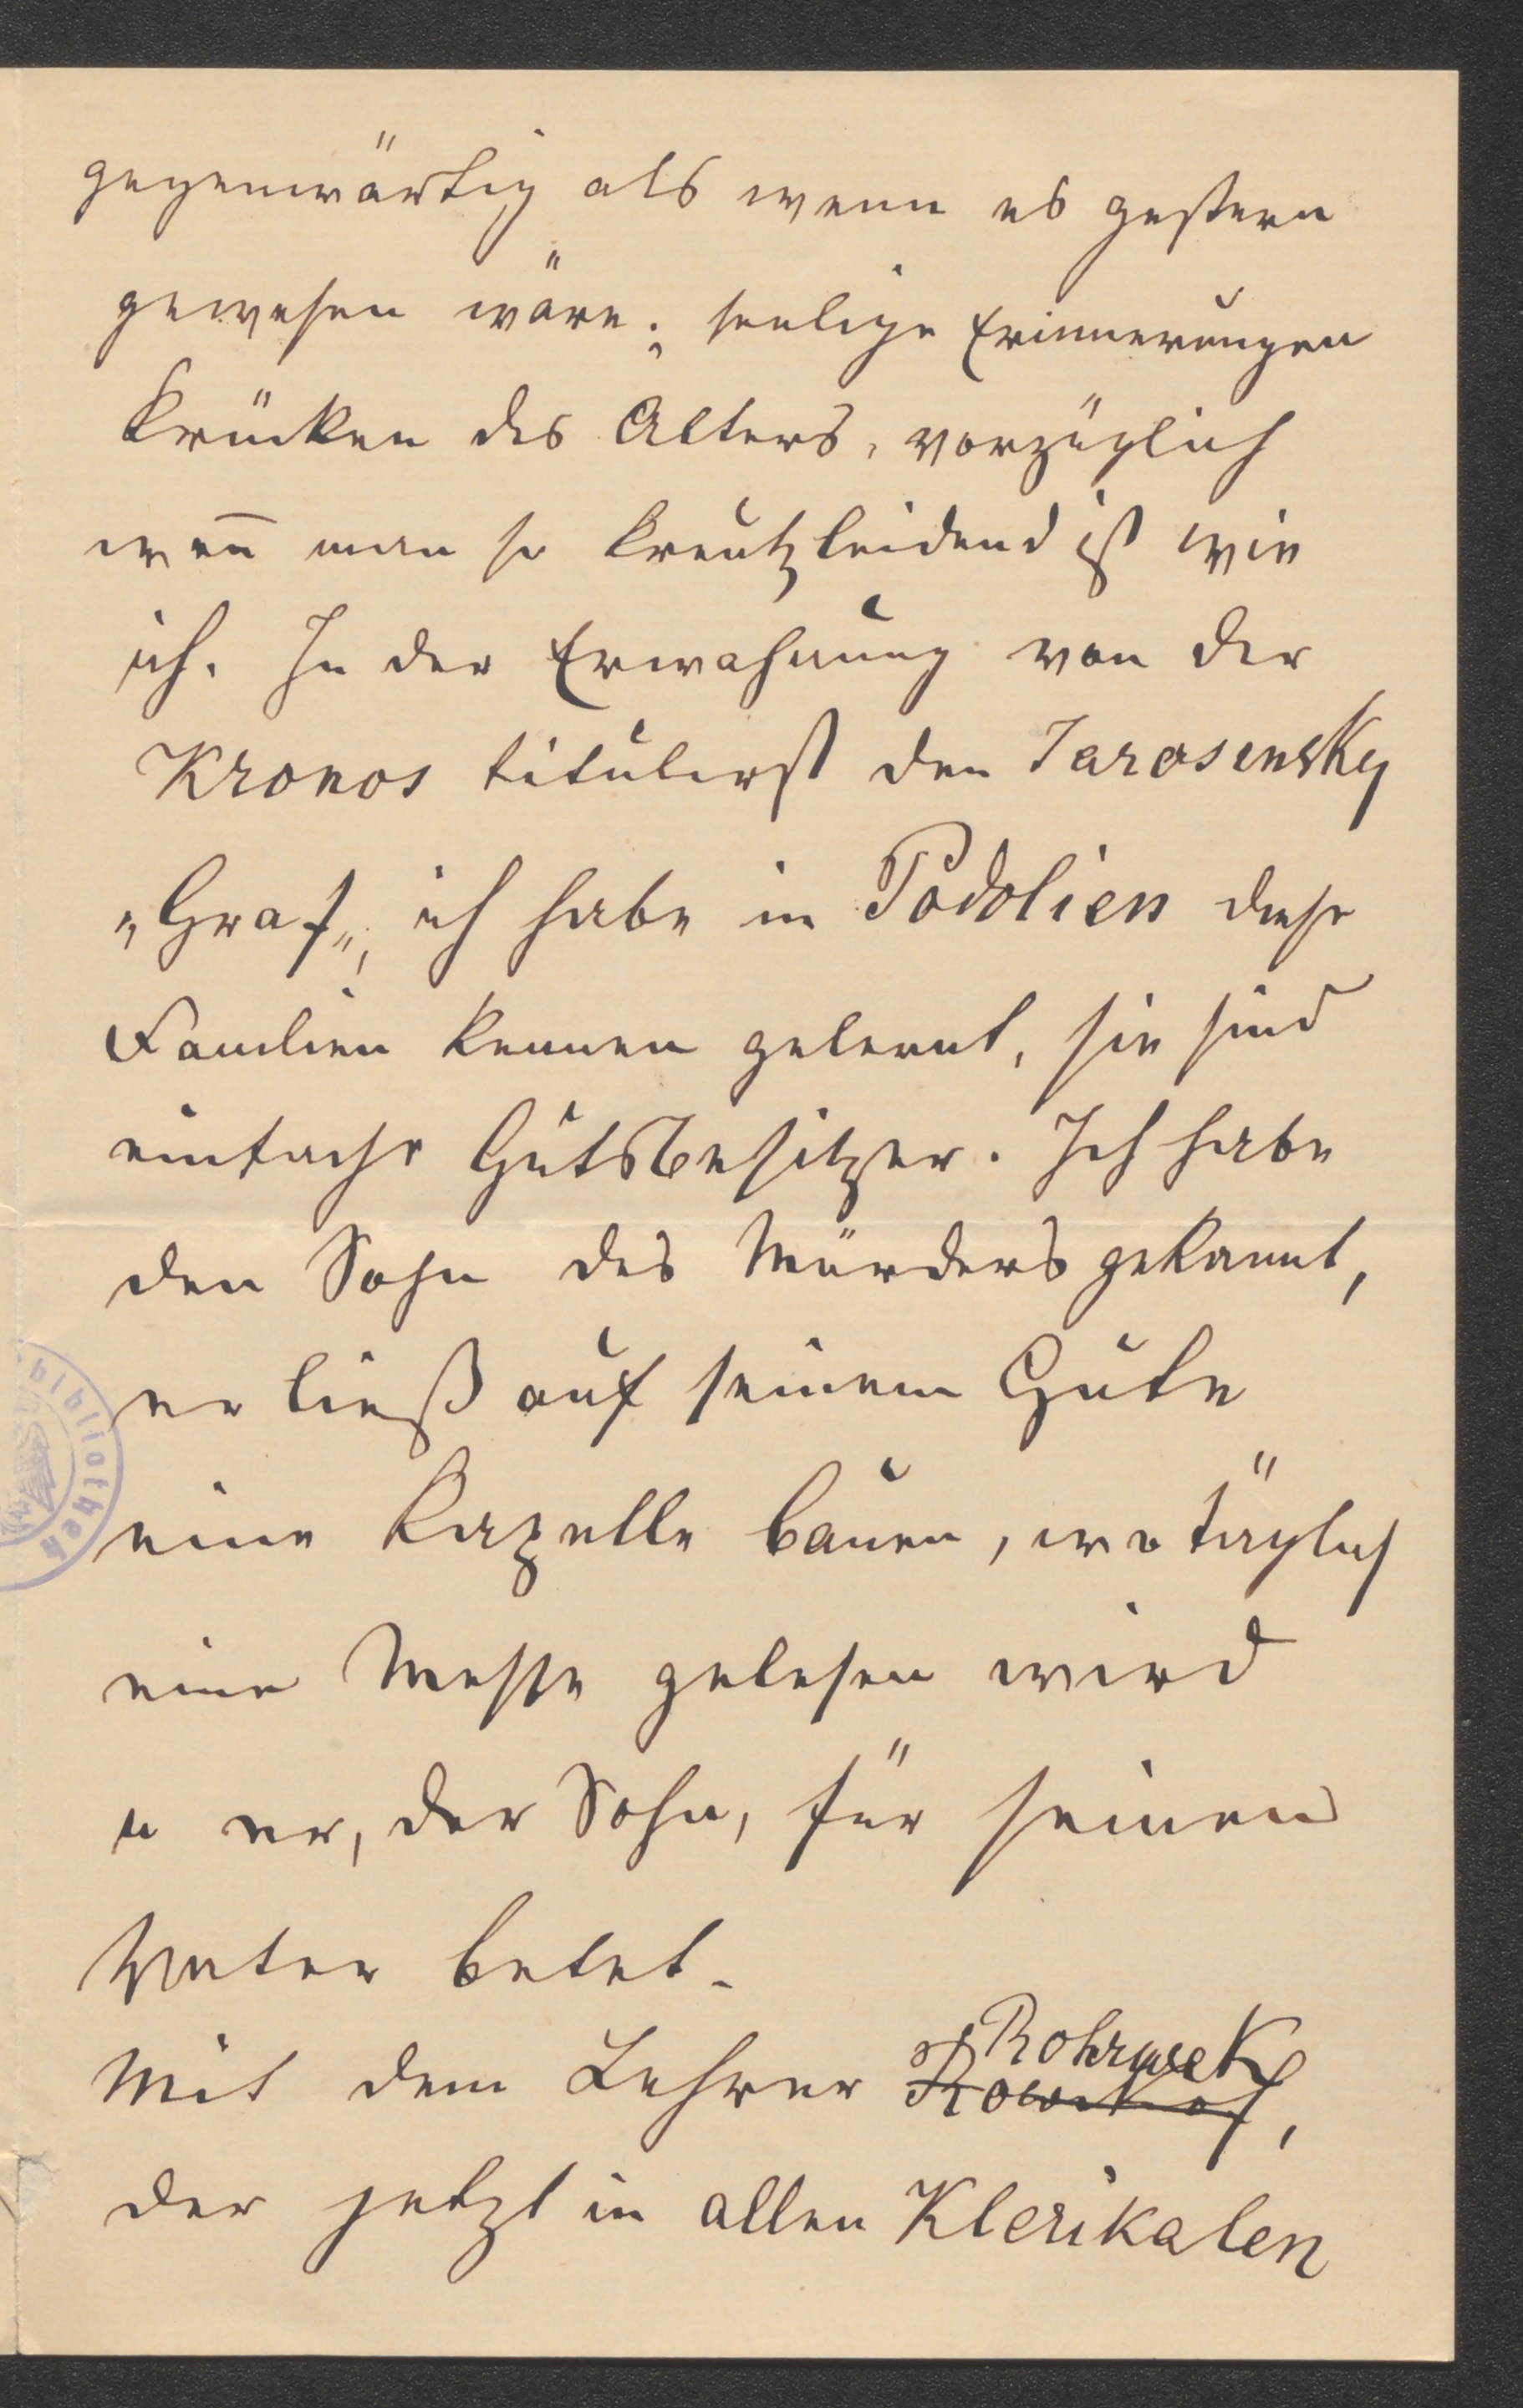 gegenwärtig als wenn es gestern
gewesen wäre; seelige Erinnerungen
Krücken des Alters, vorzüglich
wen̅ man so kreutzleidend ist wie
ich. In der Erwahnung von der
Krones titulirst den Jarosensky
„Graf„, ich habe in Podolien diese
Familien kennen gelernt, sie sind
einfache Gutsbesitzer. Ich habe
den Sohn des Mürders gekannt,
er ließ auf seinem Gute
eine Kapelle bauen, wo täglich
eine Messe gelesen wird
u er, der Sohn, für seinen
Vater betet.
Mit dem Lehrer Rohrwek,
der jetzt in allen Klerikalen
bibliothek